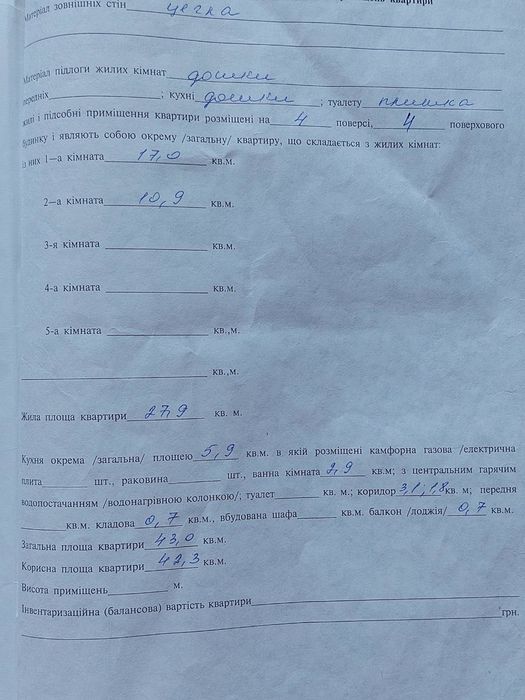 квартири
Матеріал зовнішніх стін цегла
Матеріал підлоги жилих кімнат дошки
передніх ; кухні дошки ; туалету плитка
жилі і підсобні приміщення квартири розміщені на 4 поверсі, 4 поверхового
будинку і являють собою окрему /загальну/ квартиру, що складається з жилих кімнат:
із них 1—а кімната 17,0 кв.м.
2—а кімната 10,9 кв.м.
3-я кімната кв.м.
4-а кімната кв.м.
5-а кімната кв.,м.
кв.,м.
Жила площа квартири 27,9 кв. м.
Кухня окрема /загальна/ площею 5,9 кв.м. в якій розміщені камфорна газова /електрична
плита шт., раковина шт., ванна кімната 2,9 кв.м; з центральним гарячим
водопостачанням /водонагрівною колонкою/; туалет кв. м.; коридор 3,1; 1,8 кв. м; передня
кв.м. кладова 0,7 кв.м., вбудована шафа кв.м. балкон /лоджія/ 0,7 кв.м.
Загальна площа квартири 43,0 кв.м.
Корисна площа квартири 42,3 кв.м.
Висота приміщень м.
Інвентаризаційна (балансова) вартість квартири грн.